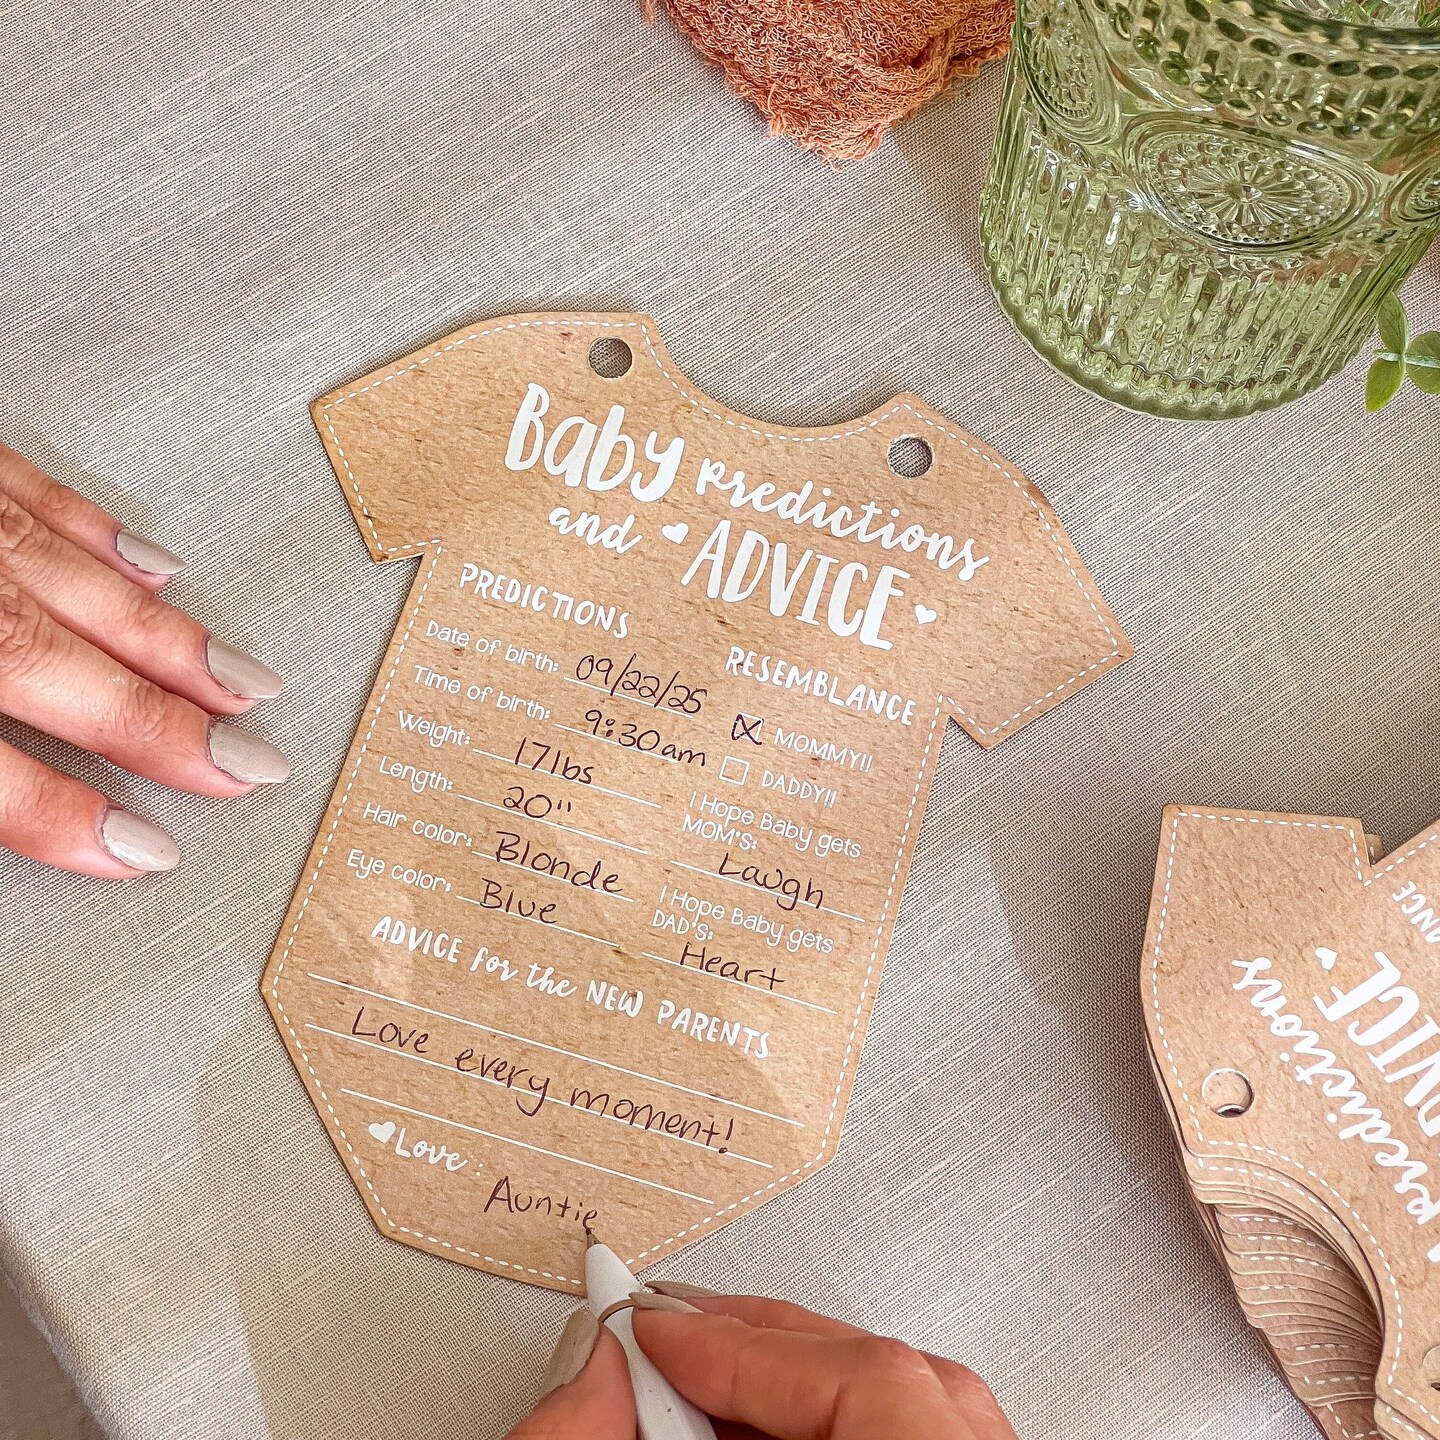 Baby Predictions
and ADVICE
PREDICTIONS
Date of birth: 09/22/25
Time of birth: 9:30am
Weight: 17lbs
Length: 20"
Hair color: Blonde
Eye color: Blue
RESEMBLANCE
MOMMY!!
DADDY!!
I Hope Baby gets
MOM'S:
Laugh
I Hope Baby gets
DAD'S:
Heart
ADVICE for the NEW PARENTS
Love every moment!
Love:
Auntie